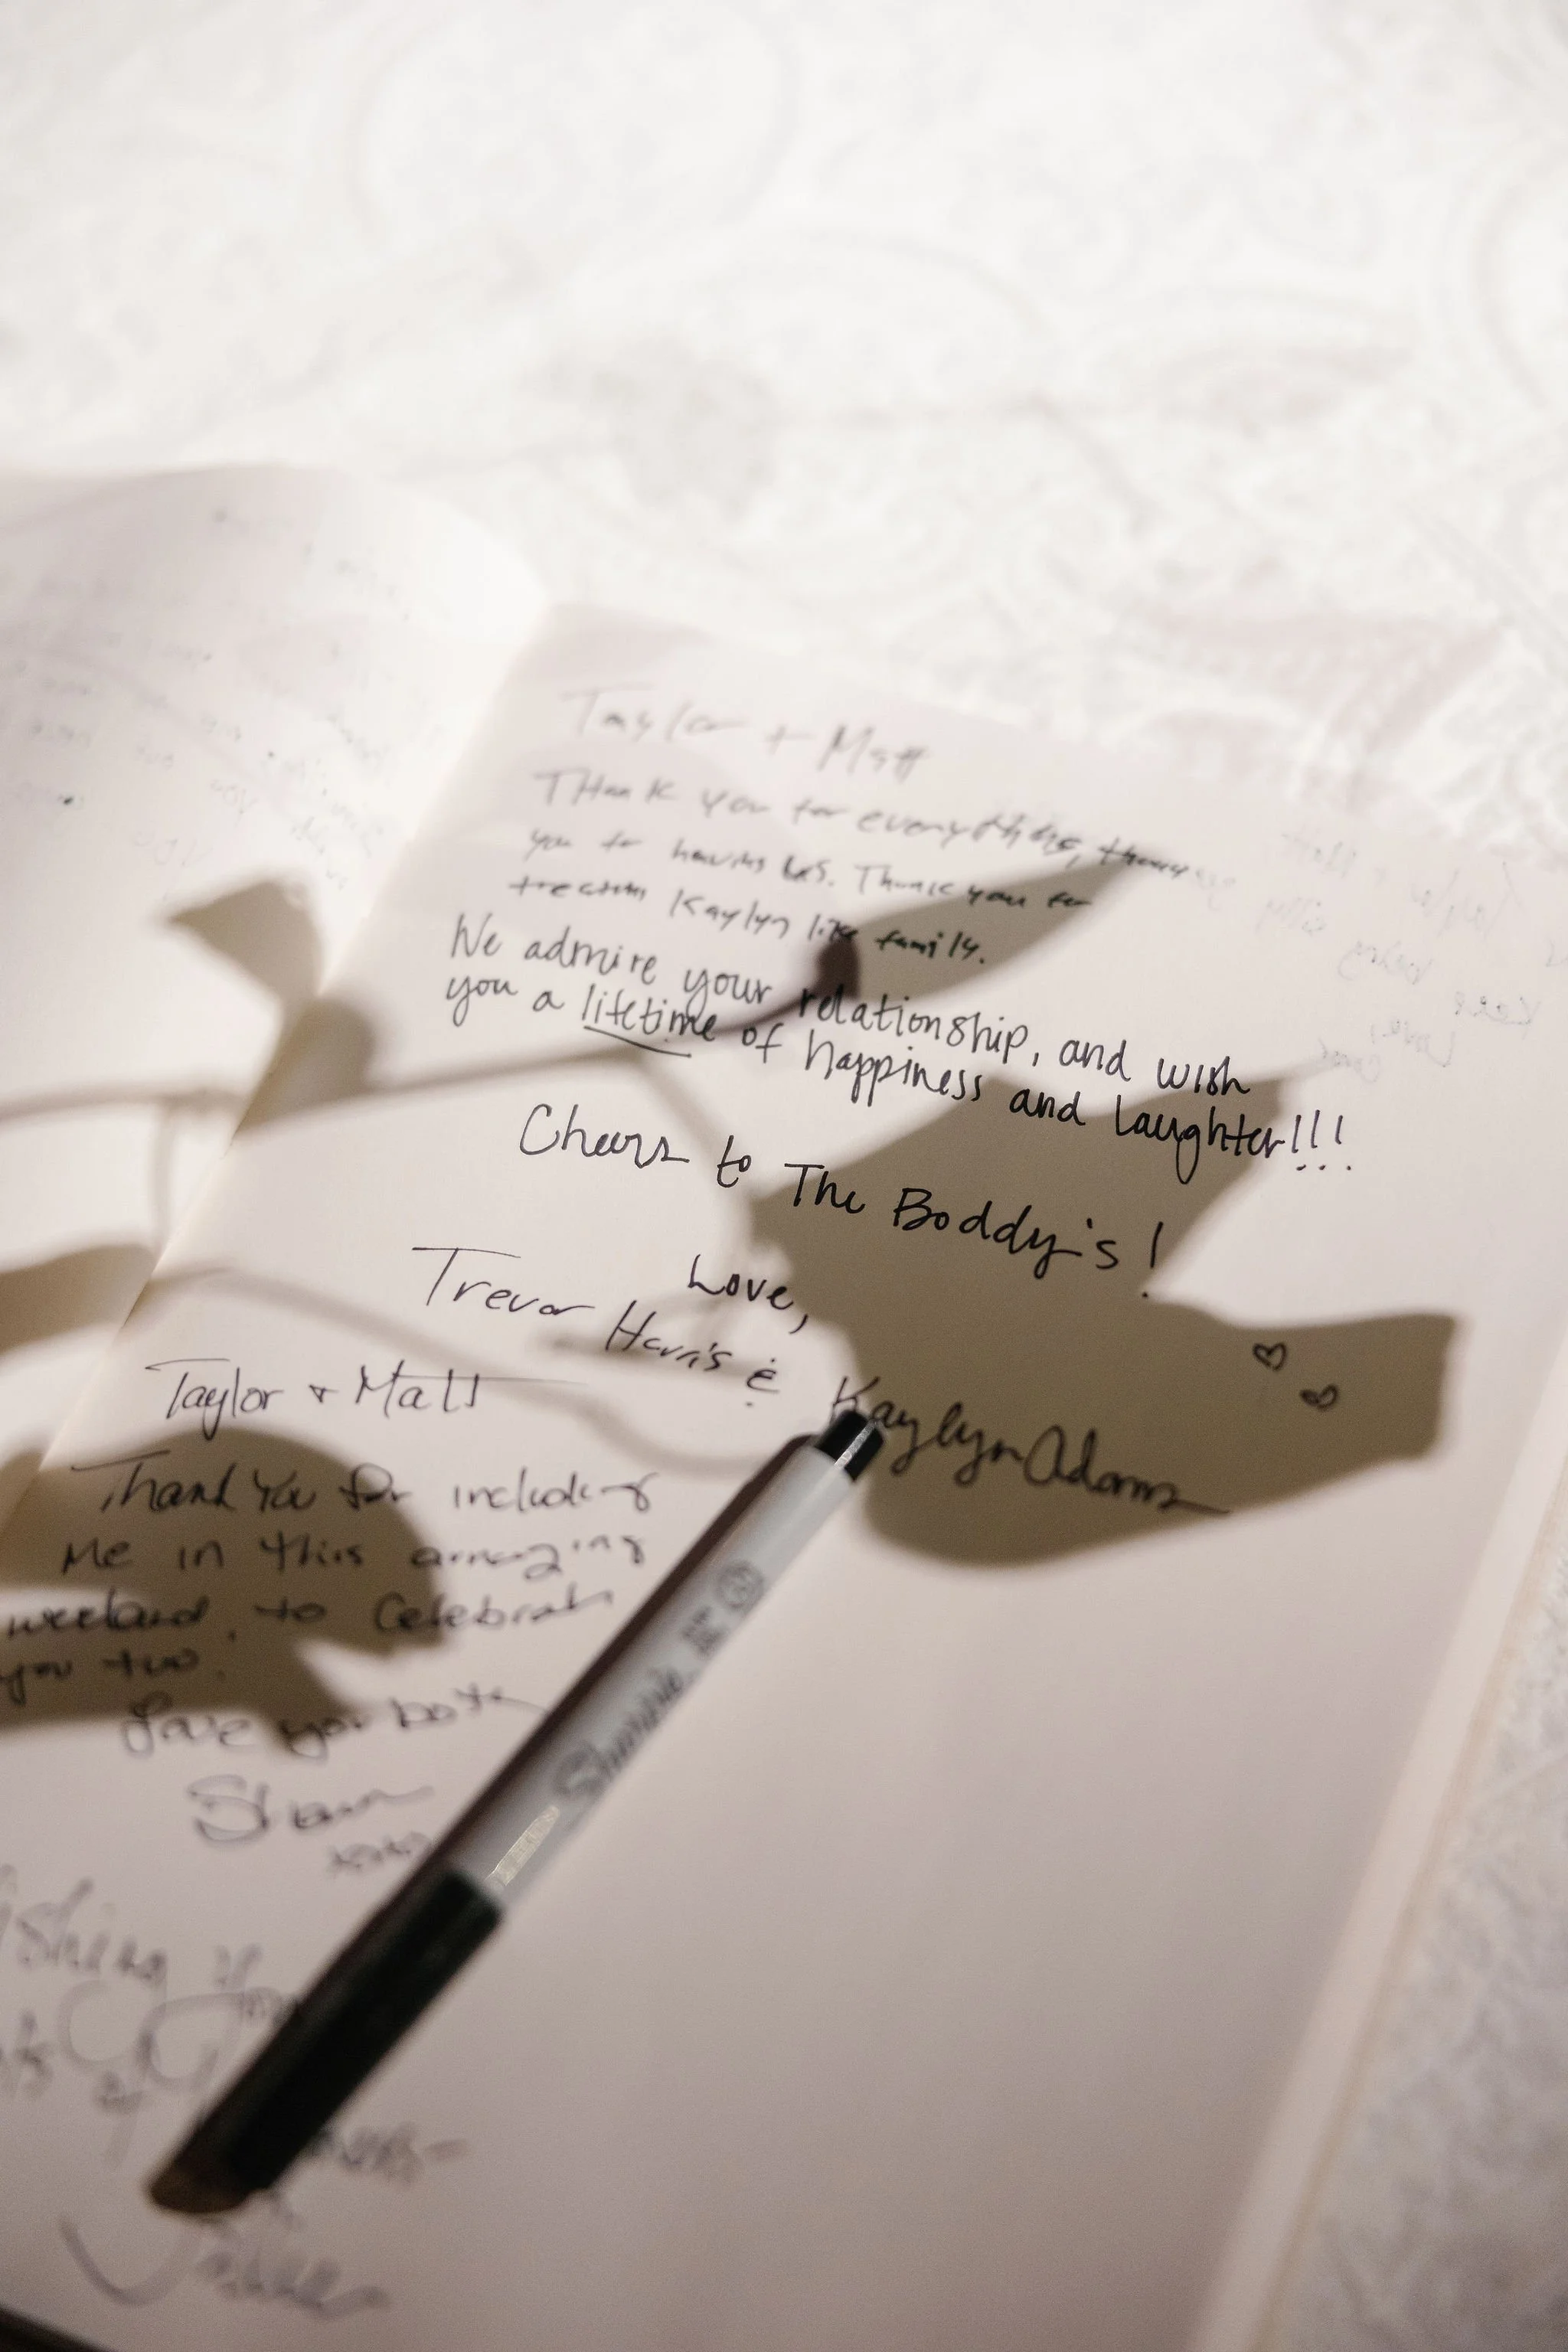 Taylor + Matt
THank you for everything, thank
you for having us. Thank you for
treating Kaylyn like family.
We admire your relationship, and wish
you a lifetime of happiness and laughter!!!
Cheers to The Boddy's!
Love,
Trevor Harris & Kaylyn Adams
Taylor + Matt
Thank You for including
Me in this amazing
weekend, to Celebrate
you two.
Love you both
Shawn
xoxo
Sharpie